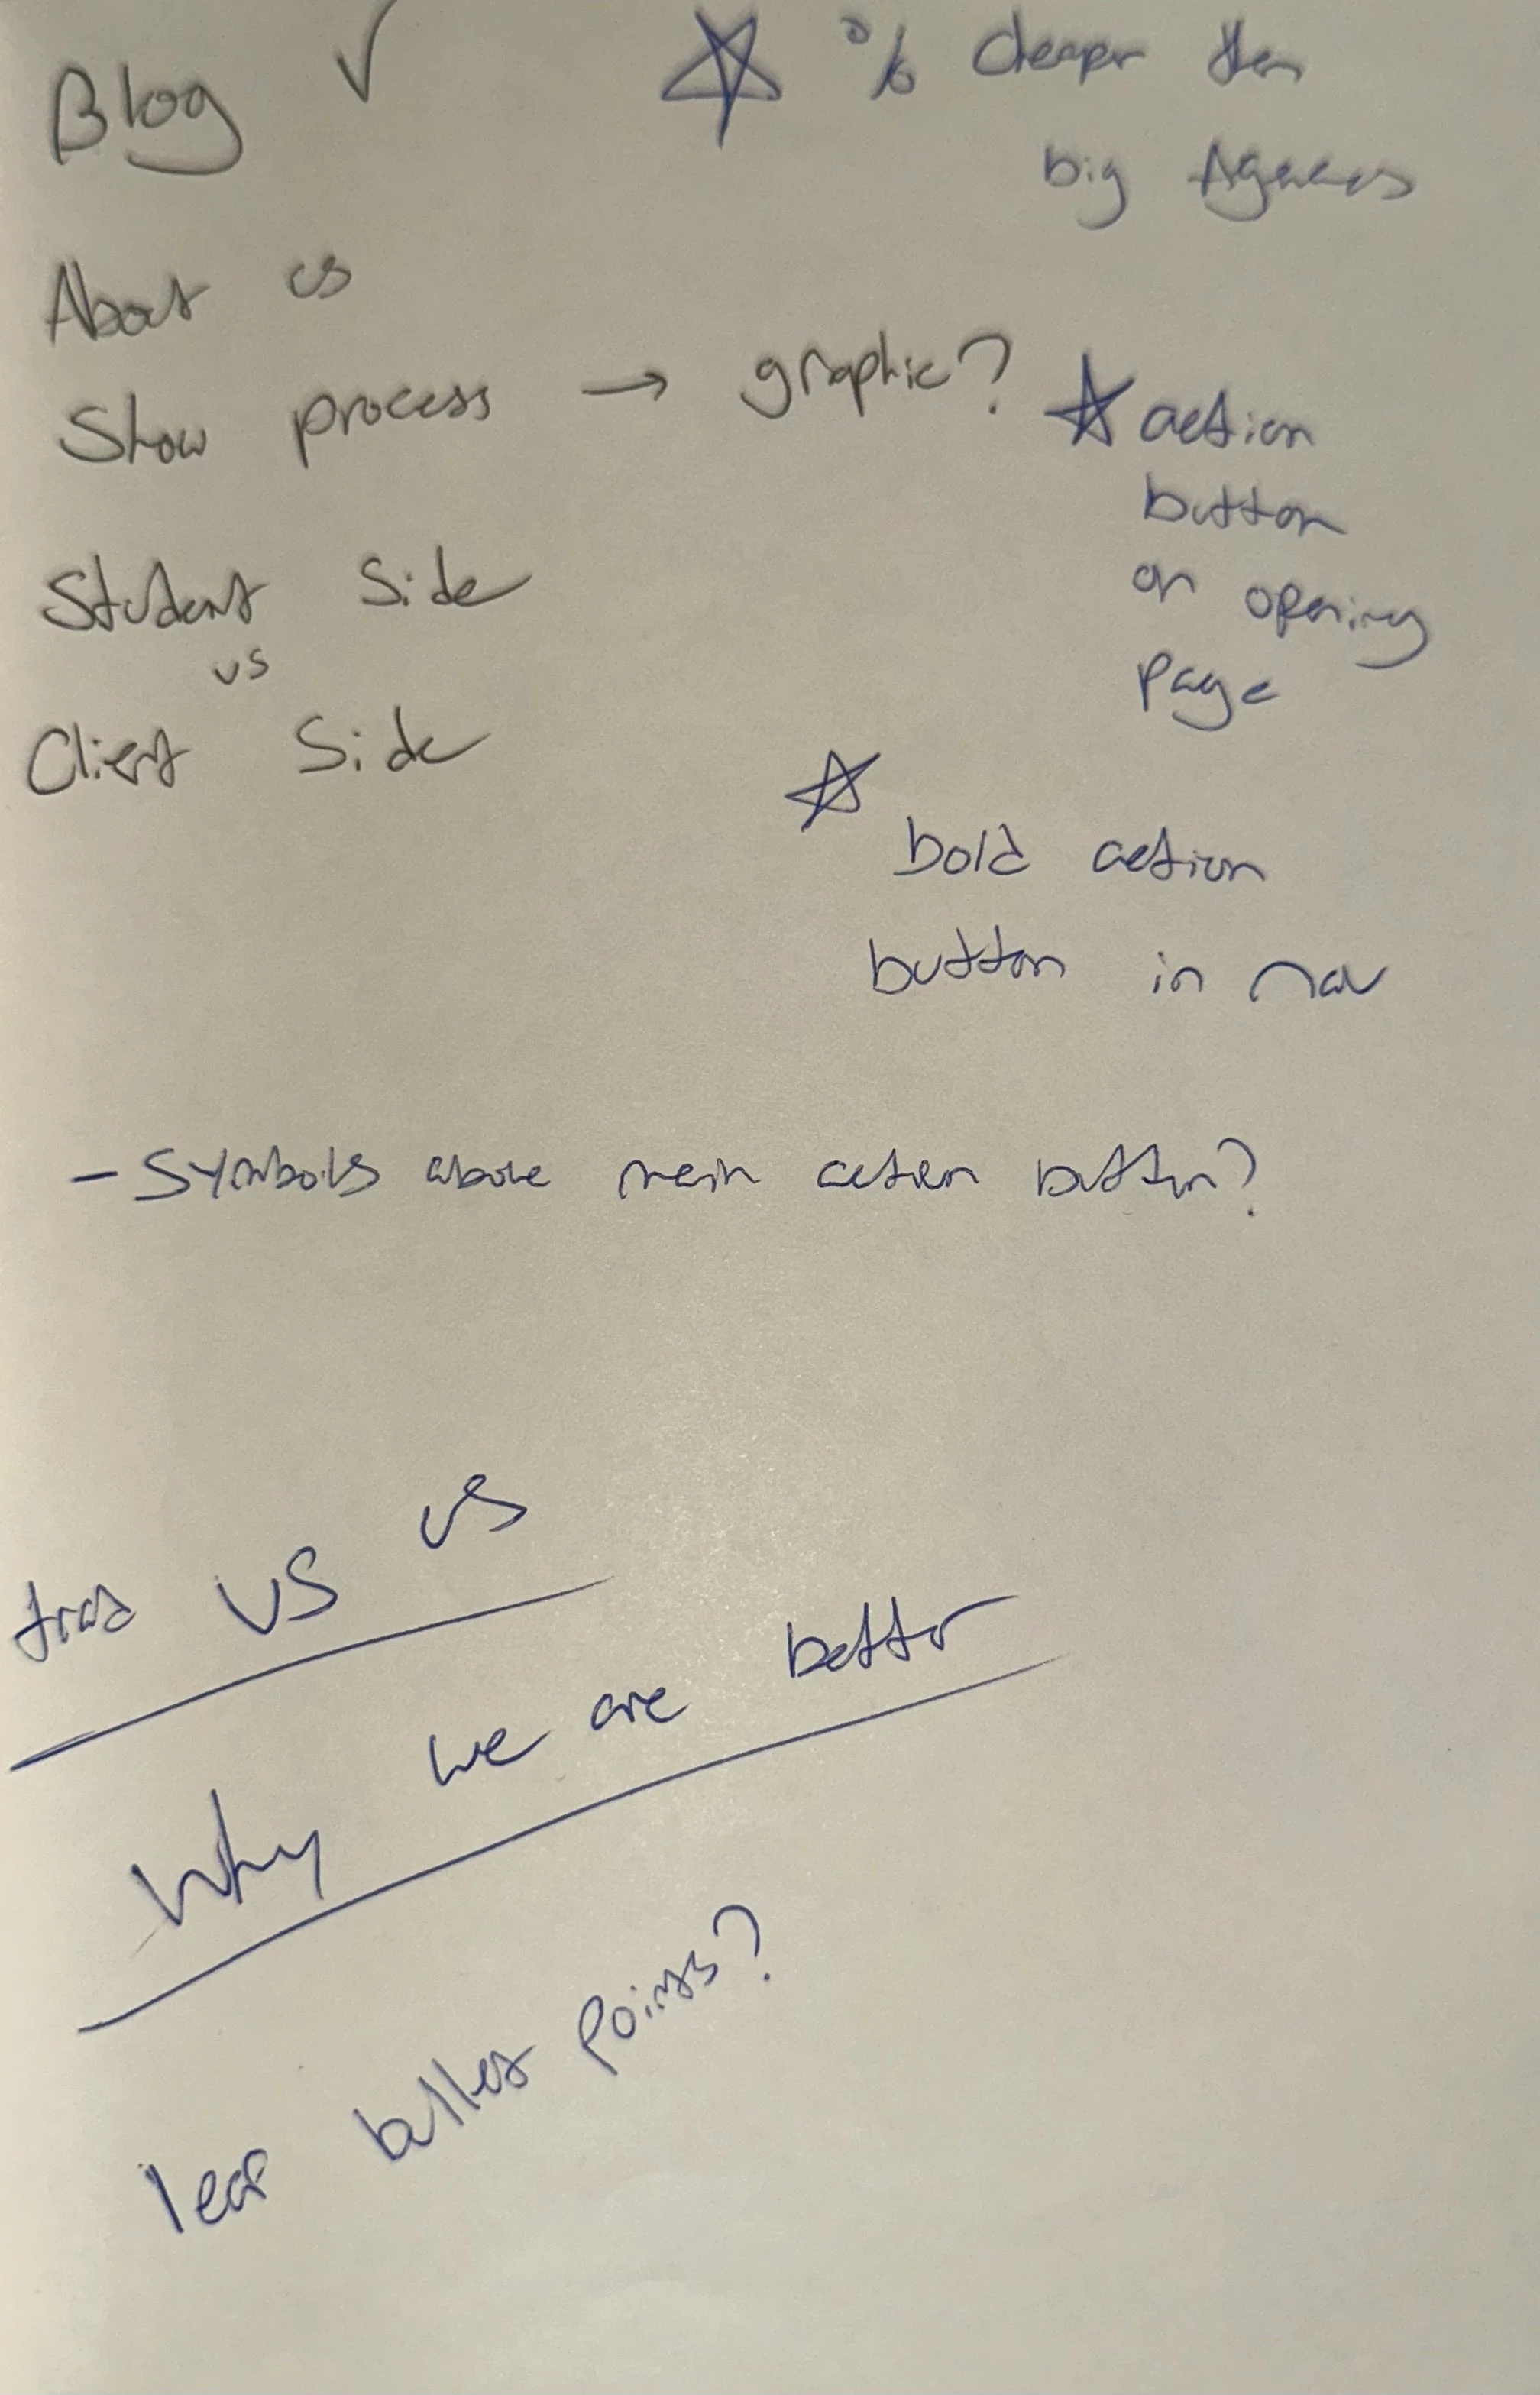 Blog ✓
☆ % cheaper then
big Agences
About us
Show process → graphic?
☆ action
button
on opening
page
Student Side
vs
Client Side
☆
bold action
button in nav
- Symbols above main action button?
trad vs us
Why we are better
bullet points?